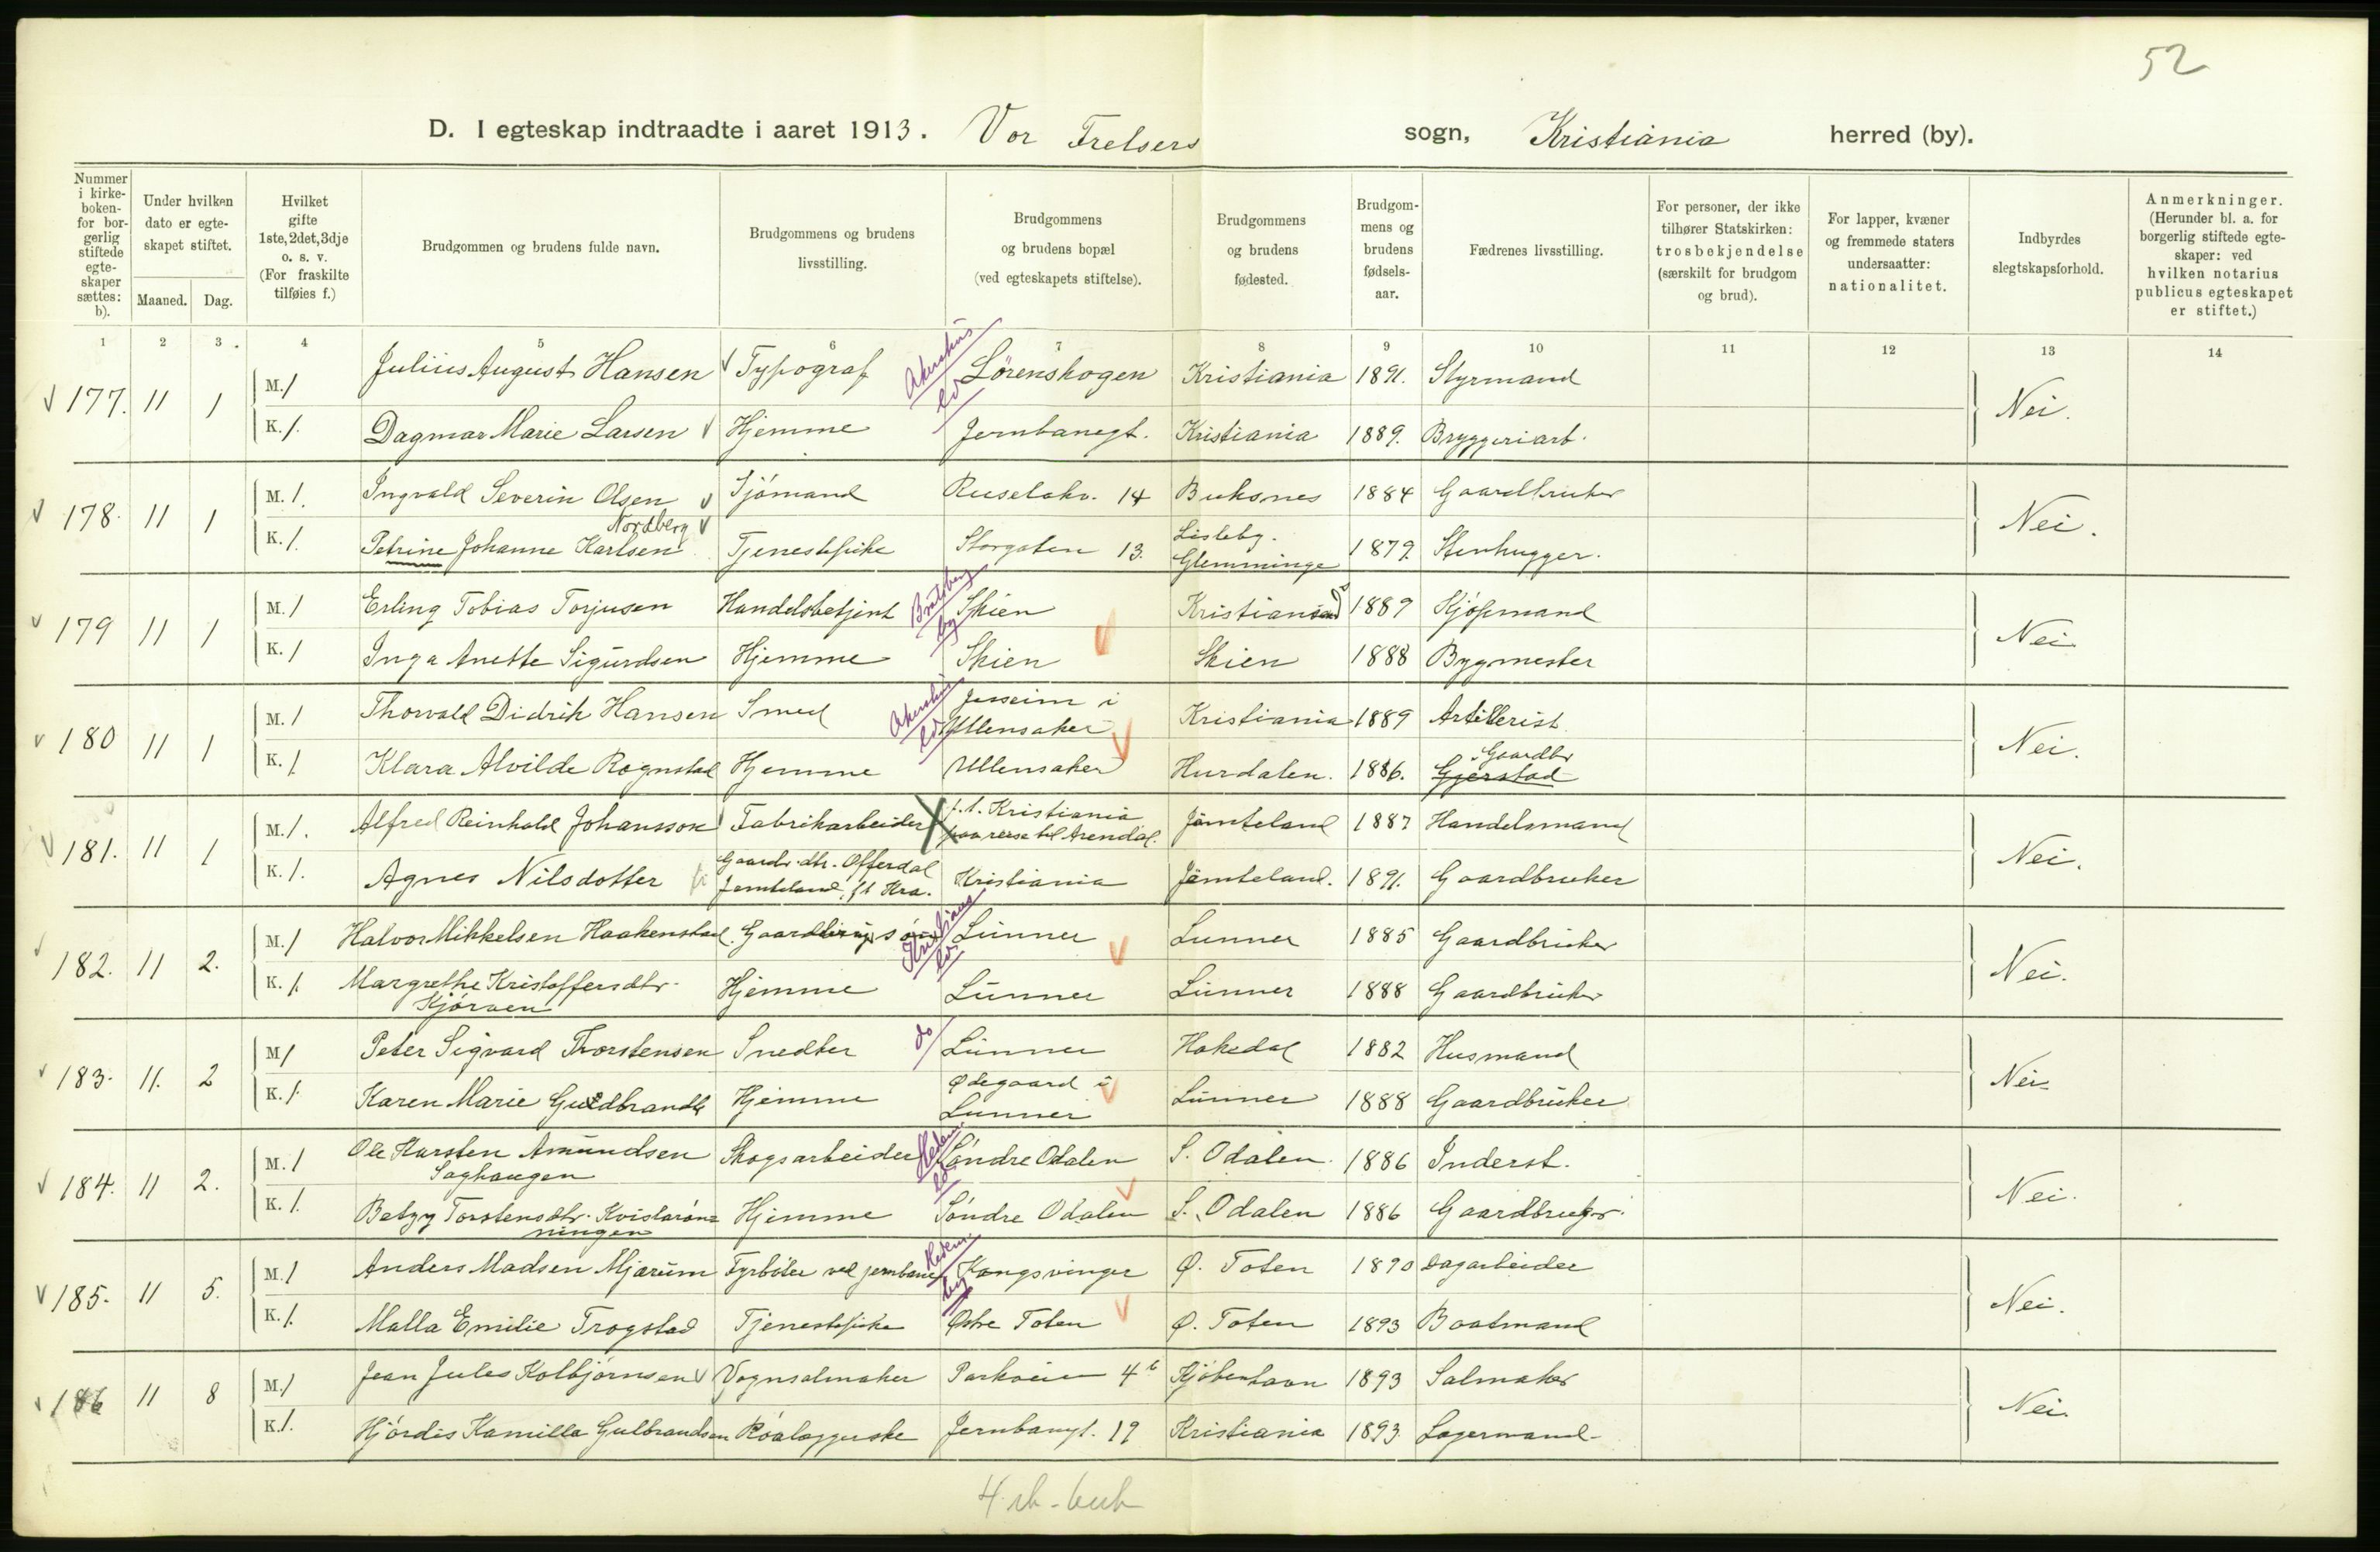 52
D. I egteskap indtraadte i aaret 1913. Vor Frelsers sogn, Kristiania herred (by).
Nummer i kirke-boken- for bor-gerlig stiftede egte-skaper sættes: b).
Under hvilken dato er egte-skapet stiftet.
Maaned. Dag.
Hvilket gifte 1ste, 2det, 3dje o. s. v. (For fraskilte tilføies f.)
Brudgommen og brudens fulde navn.
Brudgommens og brudens livsstilling.
Brudgommens og brudens bopæl (ved egteskapets stiftelse).
Brudgommens og brudens fødested.
Brudgom-mens og brudens fødsels-aar.
Fædrenes livsstilling.
For personer, der ikke tilhører Statskirken: trosbekjendelse (særskilt for brudgom og brud).
For lapper, kvæner og fremmede staters undersaatter: nationalitet.
Indbyrdes slegtskapsforhold.
Anmerkninger. (Herunder bl. a. for borgerlig stiftede egte-skaper: ved hvilken notarius publicus egteskapet er stiftet.)
1 2 3 4 5 6 7 8 9 10 11 12 13 14
177. 11 1 M. 1 Julius August Hansen Typograf Akershus ld Lörenskogen Kristiania 1891. Styrmand Nei.
K. 1. Dagmar Marie Larsen Hjemme Jernbanegt. Kristiania 1889. Bryggeriarb.
178. 11 1 M. 1. Ingvald Severin Olsen Sjömand Ruselökv. 14 Buksnes 1884 Gaardbruker Nei.
Nordberg
K. 1. Petrine Johanne Karlsen Tjenestepike Storgaten 13. Lisleby. Glemminge 1879. Stenhugger.
179 11 1 M. 1 Erling Tobias Torjusen Handelsbetjent Bratsberg by Skien Kristiansand 1889 Kjöpmand Nei
K. 1 Inga Anette Sigurdsen Hjemme Skien Skien 1888 Bygmester
180 11 1 M. 1 Thorvald Didrik Hansen Smed Akershus ld Jesseim i Ullensaker Kristiania 1889 Artillerist Nei.
Gaardbr
K. 1. Klara Alvilde Rognstad Hjemme Ullensaker Hurdalen. 1886. Gjerstad
181. 11 1 M. 1. Alfred Reinhold Johansson Fabrikarbeider p.t. Kristiania paa reise til Arendal. Jämteland 1887 Handelsmand Nei.
K. 1. Agnes Nilsdotter Gaardbr.dtr. Offerdal Jemteland, p.t. Kra. Kristiania Jämteland. 1891. Gaardbruker
182. 11 2. M. 1 Halvor Mikkelsen Haakenstad. Gaardbrugers sön Kristians ld. Lunner Lunner 1885 Gaardbruker Nei.
K. 1. Margrethe Kristoffersdtr. Hjemme Lunner Lunner 1888 Gaardbruker
Kjörven
183. 11. 2 M 1 Peter Sigvard Thorstensen Snedker do Lunner Hakedal 1882 Husmand Nei
K. 1. Karen Marie Guldbrandsen Hjemme Ødegaard i Lunner Lunner 1888 Gaardbruker
184. 11 2. M. 1 Ole Karsten Amundsen Skogsarbeider Hedem. ld Söndre Odalen S. Odalen. 1886 Inderst. Nei.
Saghaugen
K. 1. Betzy Torstensdtr. Kvislarön= Hjemme Söndre Odalen S. Odalen 1886 Gaardbruker
ningen
185. 11 5. M. 1 Anders Madsen Mjarum Fyrböter ved jernbanen Hedem. by Kongsvinger Ø. Toten 1890 Dagarbeider Nei.
K. 1. Malla Emilie Trogstad Tjenestepike Østre Toten Ø. Toten 1893 Baatmand
186 11 8 M. 1 Jean Jules Kolbjörnsen Vognsalmaker Parkveien 4 b Kjöbenhavn 1893 Salmaker Nei.
K. 1. Hjördis Kamilla Gulbrandsen Jernbangt. 19 Kristiania 1893. Lagermand